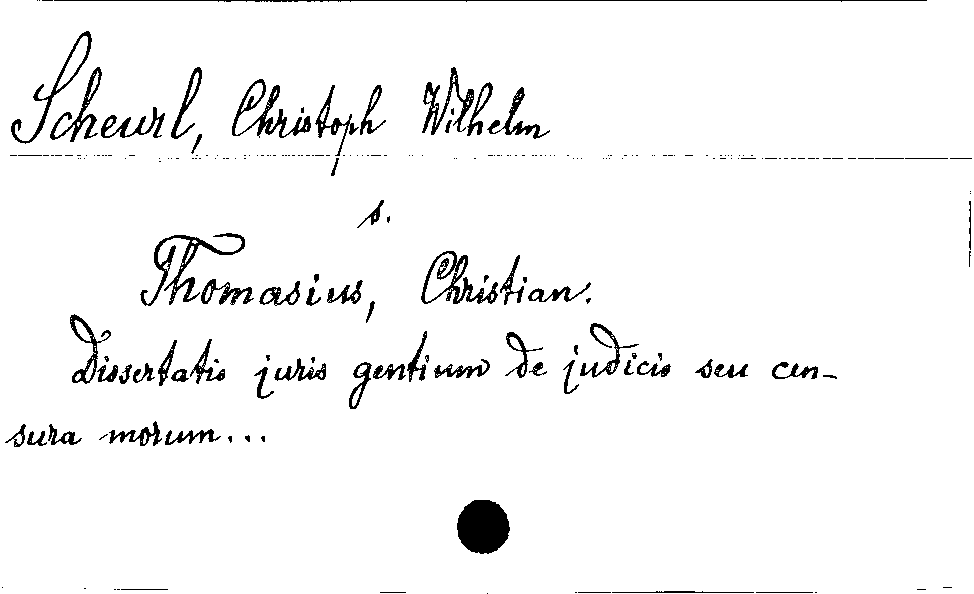 Scheurl, Christoph Wilhelm
s.
Thomasius, Christian.
Dissertatio juris gentium de judicio seu cen-
sura morum...